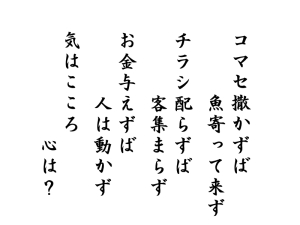 コマセ撒かずば
魚寄って来ず
チラシ配らずば
客集まらず
お金与えずば
人は動かず
気はこころ
心は？